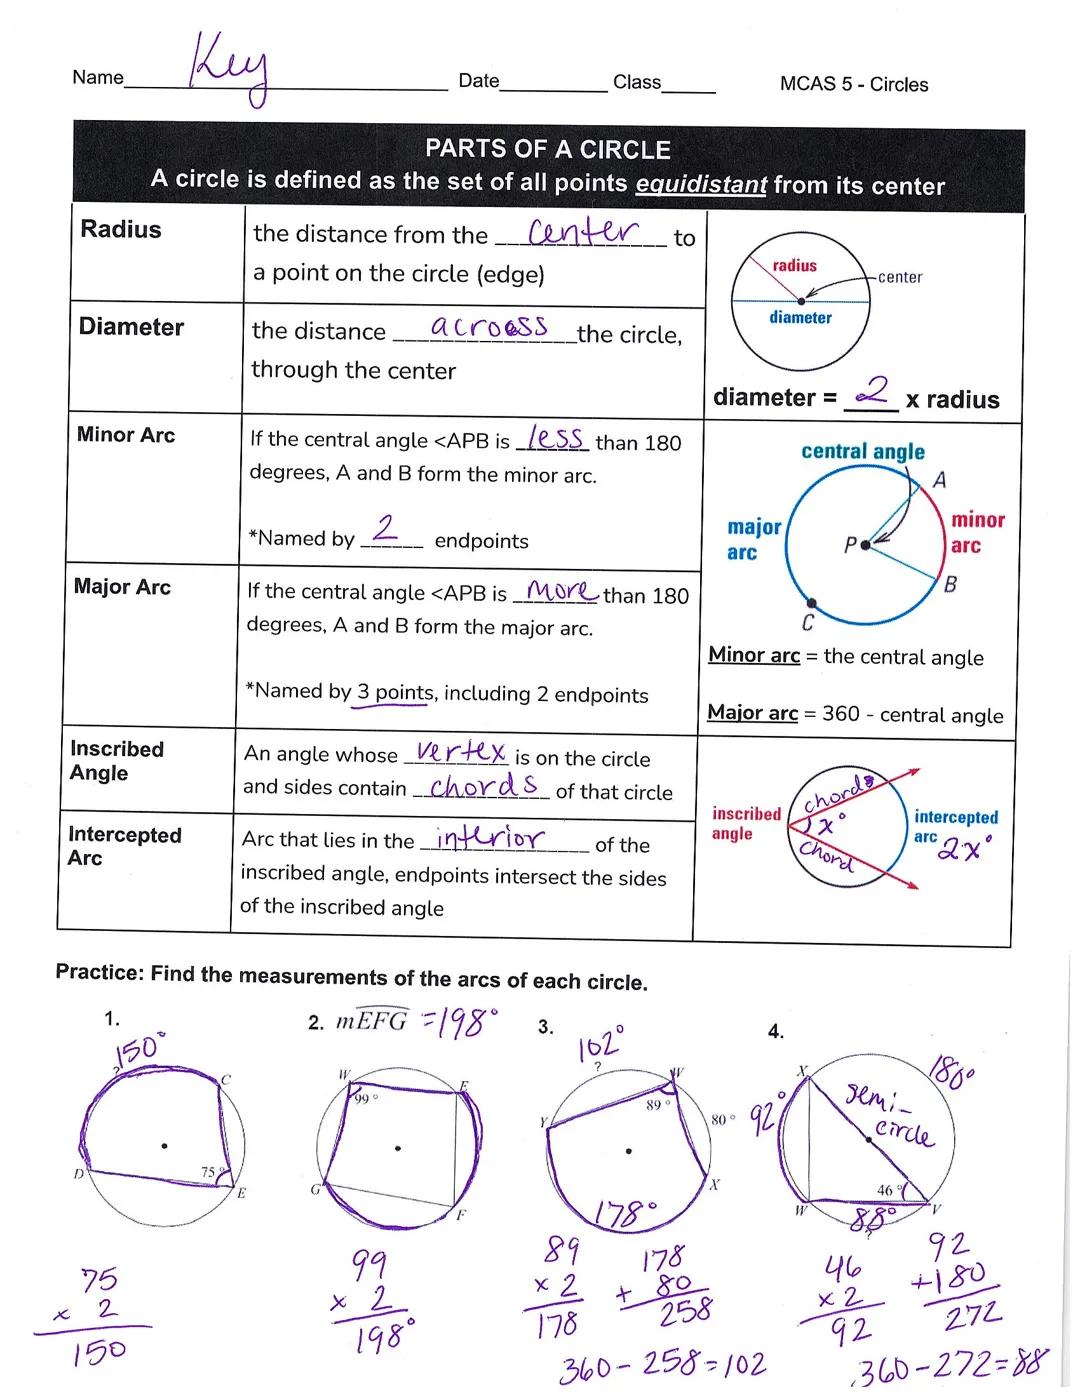 Name Key Date Class MCAS 5 - Circles
PARTS OF A CIRCLE
A circle is defined as the set of all points equidistant from its center
Radius
the distance from the center to
a point on the circle (edge)
radius
center
diameter
Diameter
the distance across the circle,
through the center
diameter = 2 x radius
Minor Arc
If the central angle <APB is less than 180
degrees, A and B form the minor arc.
*Named by 2 endpoints
central angle
A
major
arc
P
minor
arc
B
C
Major Arc
If the central angle <APB is more than 180
degrees, A and B form the major arc.
*Named by 3 points, including 2 endpoints
Minor arc = the central angle
Major arc = 360 - central angle
Inscribed
Angle
An angle whose vertex is on the circle
and sides contain chords of that circle
inscribed
angle
chords
x°
chord
intercepted
arc 2x°
Intercepted
Arc
Arc that lies in the interior of the
inscribed angle, endpoints intersect the sides
of the inscribed angle
Practice: Find the measurements of the arcs of each circle.
1.
150°
?
C
D
75°
E
75
x 2
150
2. mEFG = 198°
W
99°
E
G
F
99
x 2
198°
3.
102°
?
W
89°
Y
80°
X
178°
89
x 2
178
178
+ 80
258
360 - 258 = 102
4.
X
180°
92°
semi-
circle
46°
W
88°
?
V
46
x 2
92
92
+180
272
360 - 272 = 88